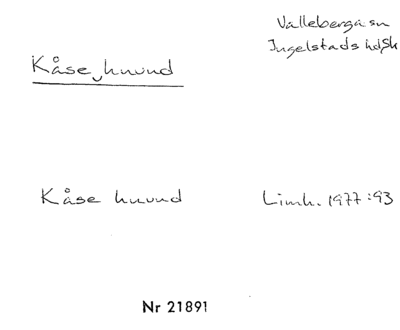 Vallebergasn
Ingelstads hd, Sk
Kåse huvud
Kåse huvud
Limh. 1977:93
Nr 21891